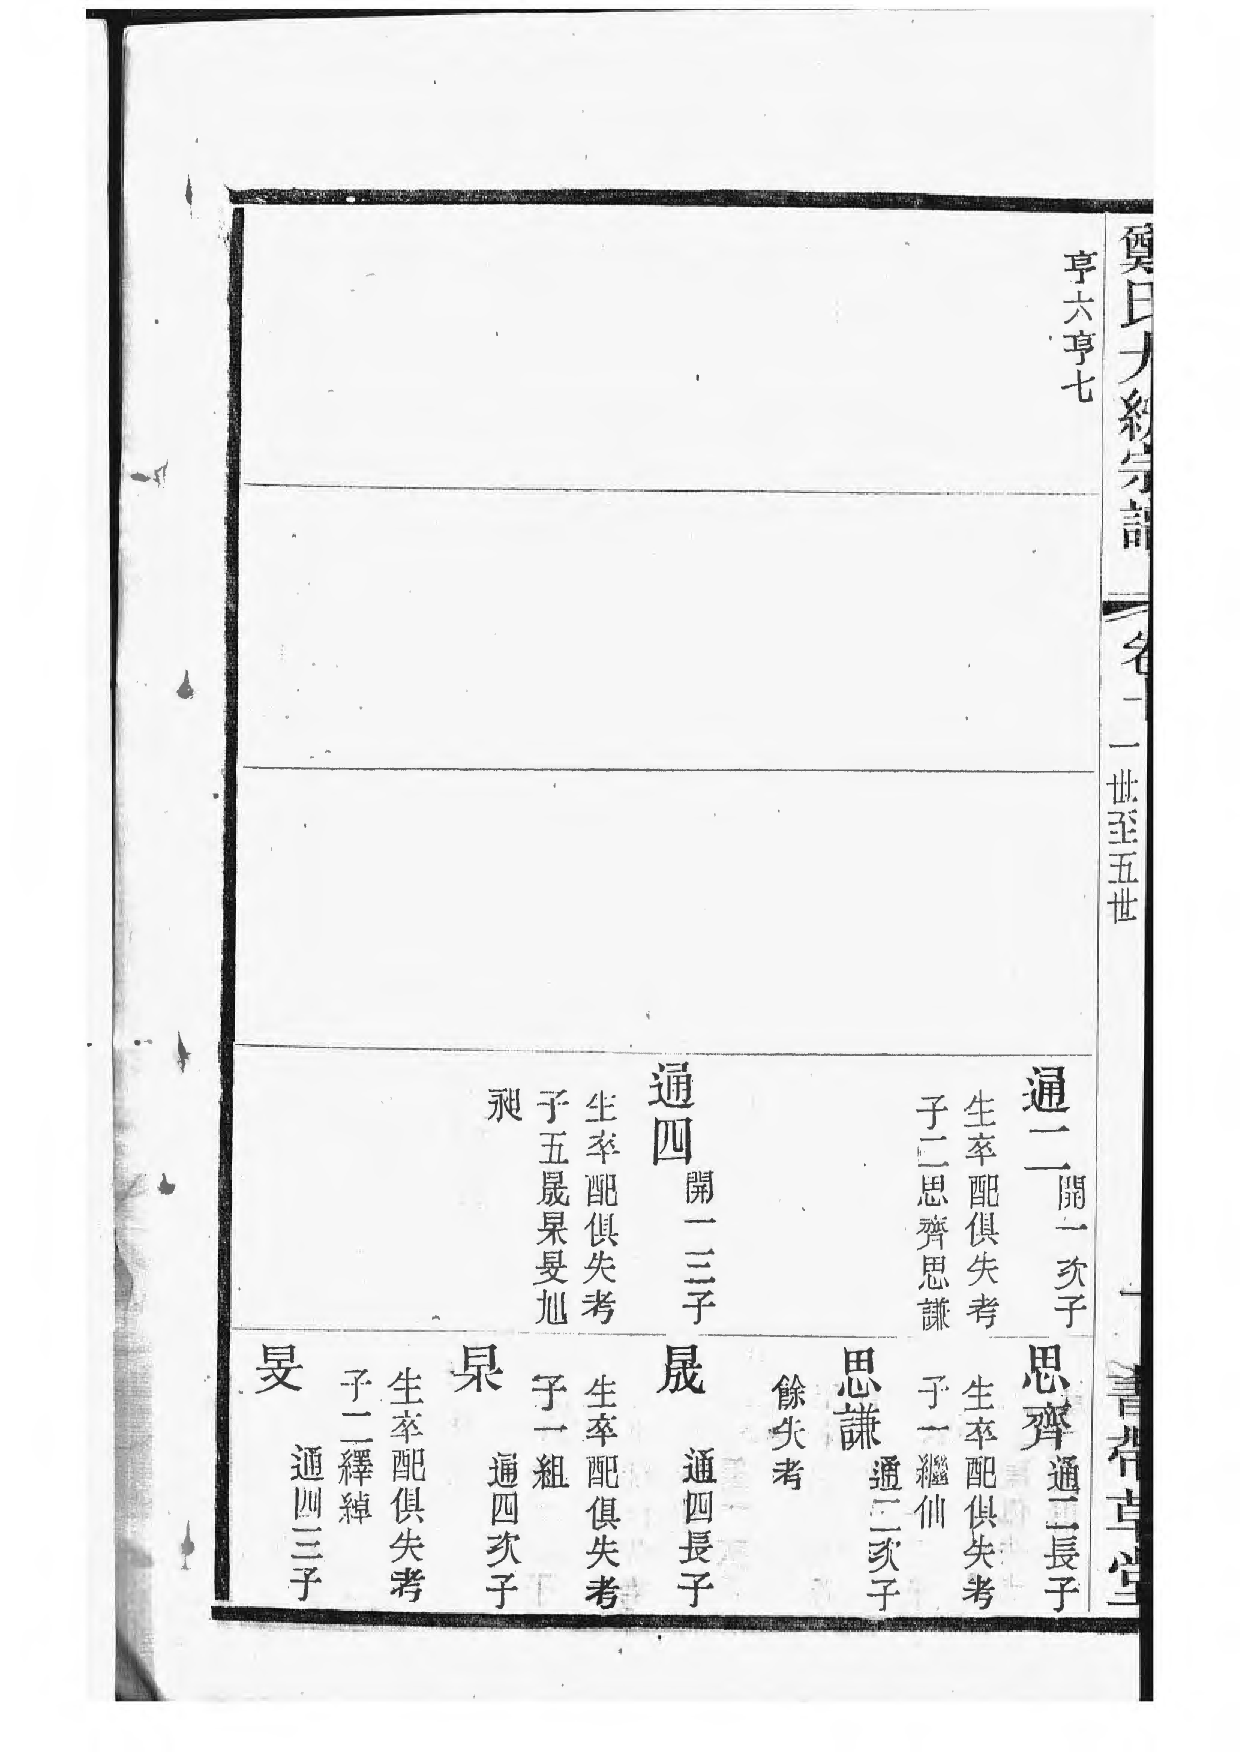 鄭氏大統宗譜
卷十
一世至五世
一
書帶草堂
亨六亨七
通二
開一次子
生卒配俱失考
子二思齊思謙
通四
開一三子
生卒配俱失考
子五晟杲旻旭
昶
思齊
通二長子
生卒配俱失考
子一繼仙
思謙
通二次子
餘失考
晟
通四長子
生卒配俱失考
子一組
杲
通四次子
生卒配俱失考
子二繹綽
旻
通四三子